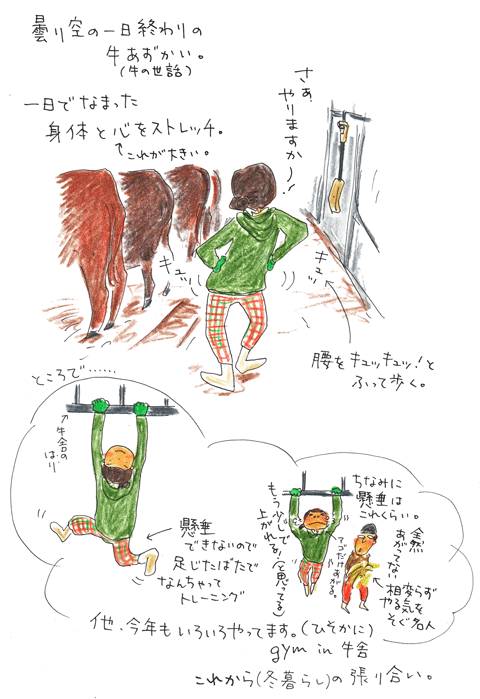 曇り空の一日終わりの
牛あずかい。
(牛の世話)
一日でなまった
身体と心をストレッチ。
↑これが大きい。
さぁ、
やりますかー!
キュッ
キュッ
腰をキュッキュッ!と
ふって歩く。
ところで……
↑牛舎の
はり
懸垂
できないので
足じたばたで
なんちゃって
トレーニング
ちなみに
懸垂は
これくらい。
もう少しで
上がれる!(と思ってる)
アゴだけあがる。
全然
あがってない
相変らず
やる気を
そぐ名人
他、今年もいろいろやってます。(ひそかに)
gym in 牛舎
これから(冬暮らし)の張り合い。